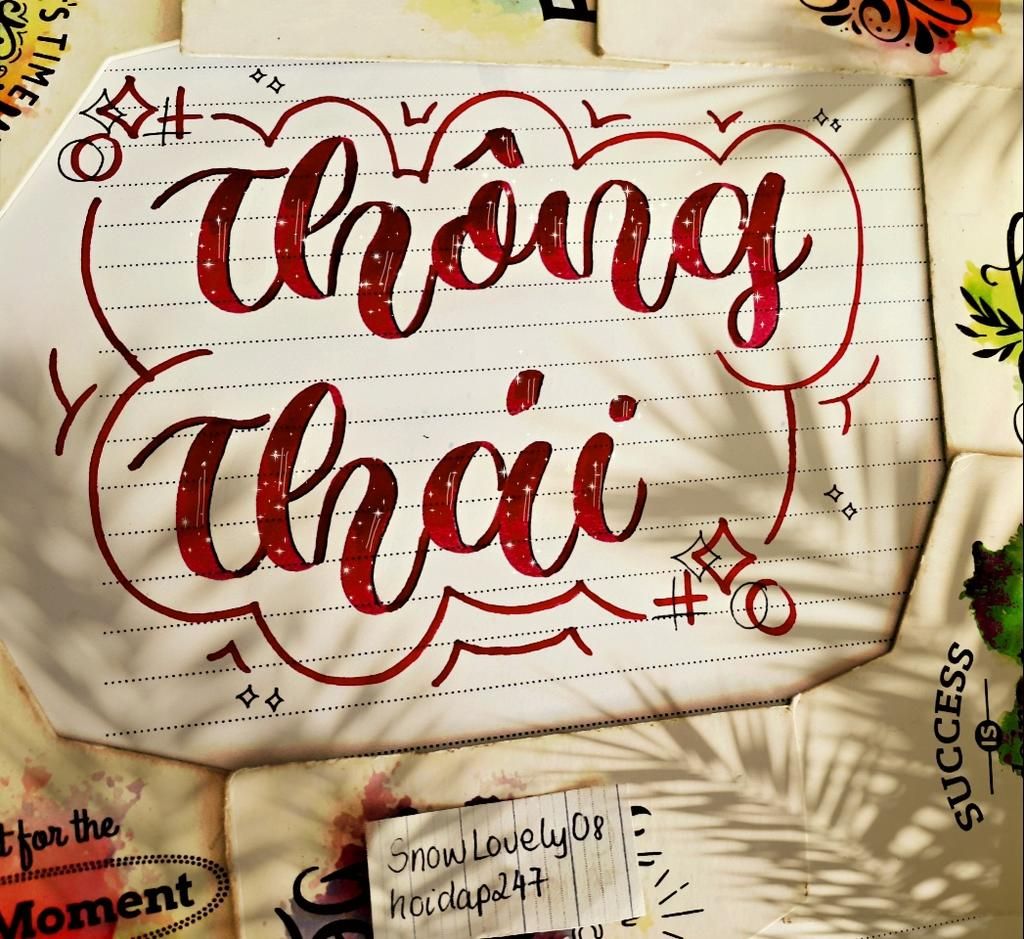 'S TIME
Thông
Thái
SUCCESS
IS
t for the
Moment
SnowLovely08
hoidap247